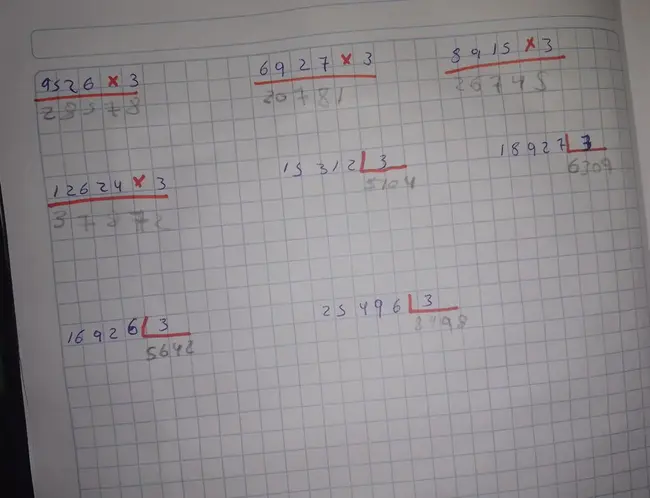 9526 x 3
28578
6927 x 3
20781
8915 x 3
26745
12624 x 3
37872
15312 3
5104
18927 3
6309
16926 3
5642
25496 3
8498